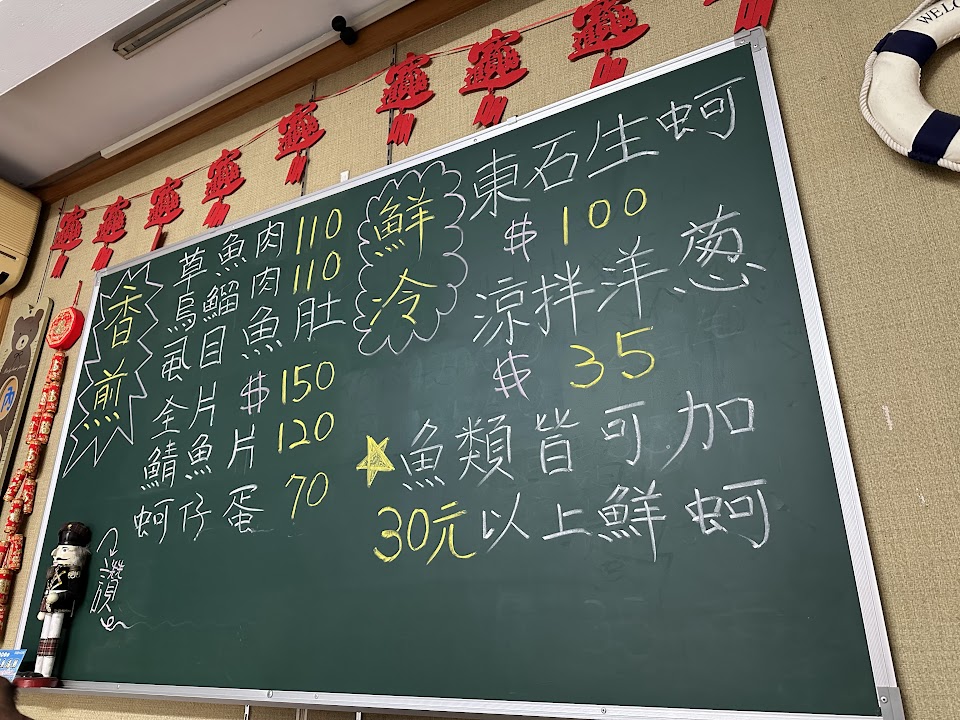 香煎
草魚肉 110
烏鰡肉 110
虱目魚肚
全片 $150
鯖魚片 120
蚵仔蛋 70
讚
鮮冷
東石生蚵
$100
涼拌洋葱
$35
★魚類皆可加
30元以上鮮蚵
WELCO